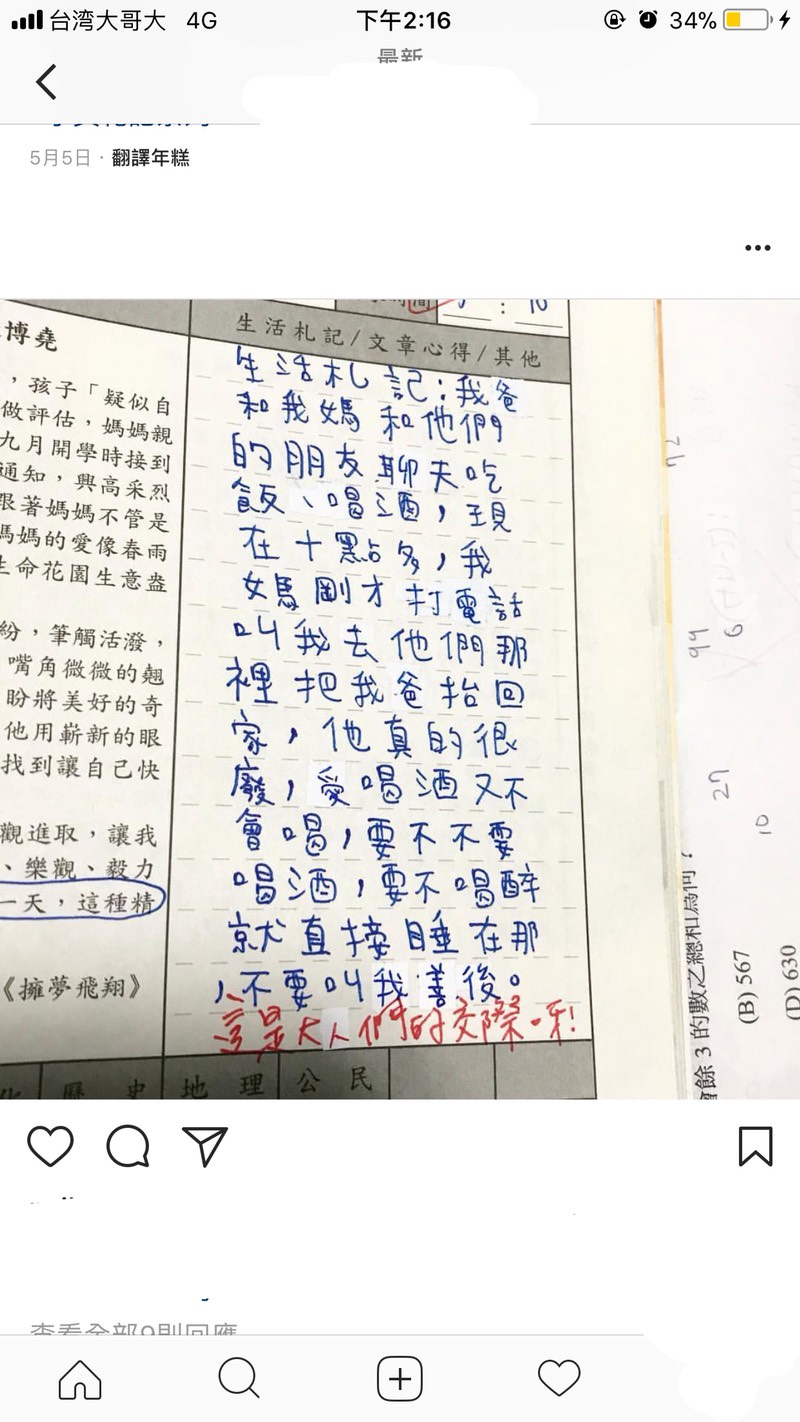 台湾大哥大 4G 下午2:16 34%
最新
5月5日 · 翻譯年糕
：10
生活札記/文章心得/其他
博堯
，孩子「疑似自
做評估，媽媽親
九月開學時接到
通知，興高采烈
跟著媽媽不管是
媽媽的愛像春雨
生命花園生意盎
紛，筆觸活潑，
嘴角微微的翹
盼將美好的奇
他用嶄新的眼
找到讓自己快
觀進取，讓我
、樂觀、毅力
一天，這種精
《擁夢飛翔》
生活札記：我爸
和我媽和他們
的朋友聊天吃
飯、喝酒，現
在十點多，我
媽剛才打電話
叫我去他們那
裡把我爸抬回
家，他真的很
廢，愛喝酒又不
會喝，要不不要
喝酒，要不喝醉
就直接睡在那
，不要叫我善後。
這是大人們的交際呀!
歷史 地理 公民
99
6
27
10
會餘 3 的數之總和為何？
(B) 567
(D) 630
查看全部9則回應